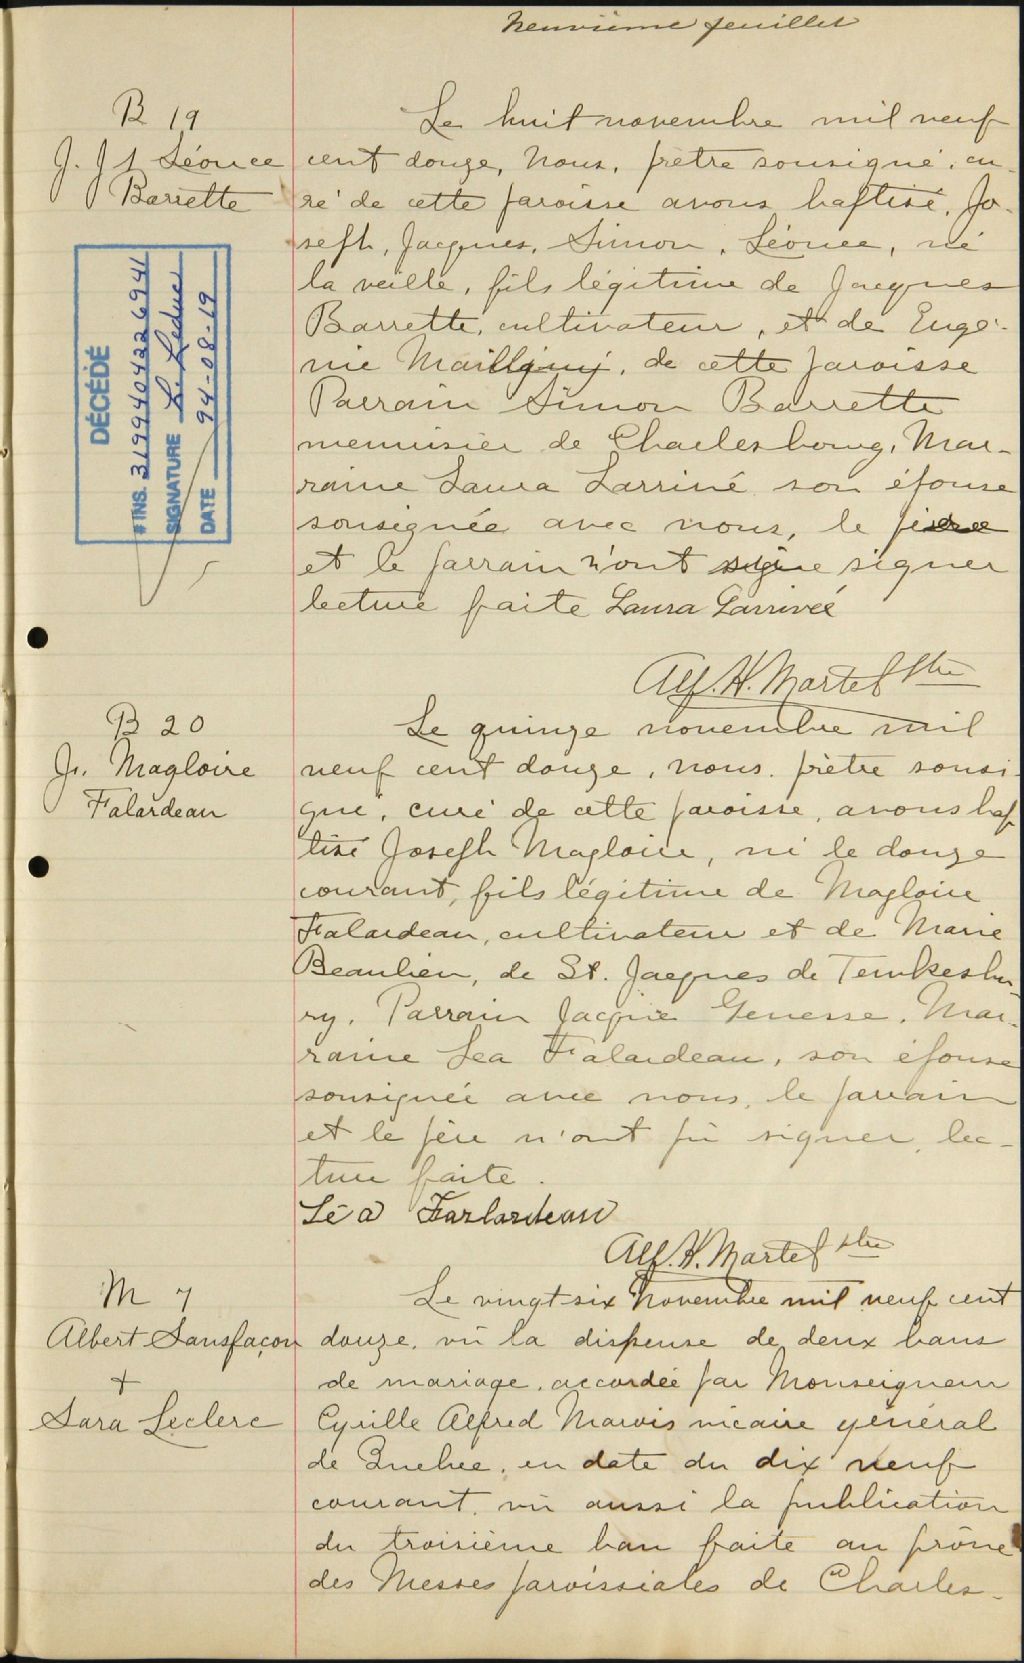 neuvième feuillet
B 19
J. J. S. Léonce
Barrette
Le huit novembre mil neuf
cent douze, Nous, prêtre sousigné, cu-
ré de cette paroisse avons baptisé, Jo-
seph, Jacques, Simon, Léonce, né
la veille, fils légitime de Jacques
Barrette, cultivateur, et de Eugé-
nie Mailly, de cette paroisse
Parrain Simon Barrette
menuisier de Charlesbourg, Mar-
raine Laura Larrivé son épouse
sousignée avec nous, le père
et le parrain n'ont signer
lecture faite Laura Larrivéé
Alf. H. Martel ptre
DÉCÉDÉ
# INS. 3199404226941
SIGNATURE L. Leduc
DATE 94-08-19
B 20
Js. Magloire
Falardeau
Le quinze novembre mil
neuf cent douze, nous. prêtre sousi-
gné, curé de cette paroisse, avons bap
tisé Joseph Magloire, né le douze
courant, fils légitime de Magloire
Falardeau, cultivateur et de Marie
Beaulieu, de St. Jacques de Tewkesbu-
ry. Parrain Jacques Genesse. Mar-
raine Lea Falardeau, son épouse
sousignée avec nous, le parrain
et le père n'ont pû signer, lec-
ture faite.
Léa Farlardeau
Alf. H. Martel ptre
M 7
Albert Sansfaçon
+
Sara Leclerc
Le vingt six Novembre mil neuf cent
douze, vû la dispense de deux bans
de mariage, accordée par Monseigneur
Cyrille Alfred Marois vicaire général
de Quebec, en date du dix neuf
courant, vû aussi la publication
du troisième ban faite au prône
des Messes paroissiales de Charles-